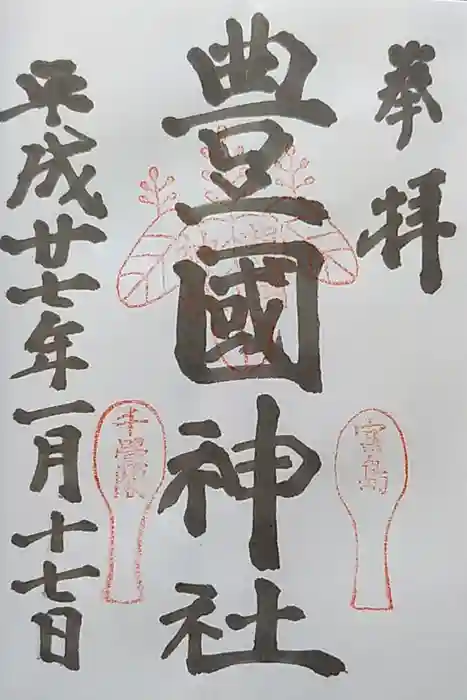 奉拝
豊國神社
平成廿七年一月十七日
宮島